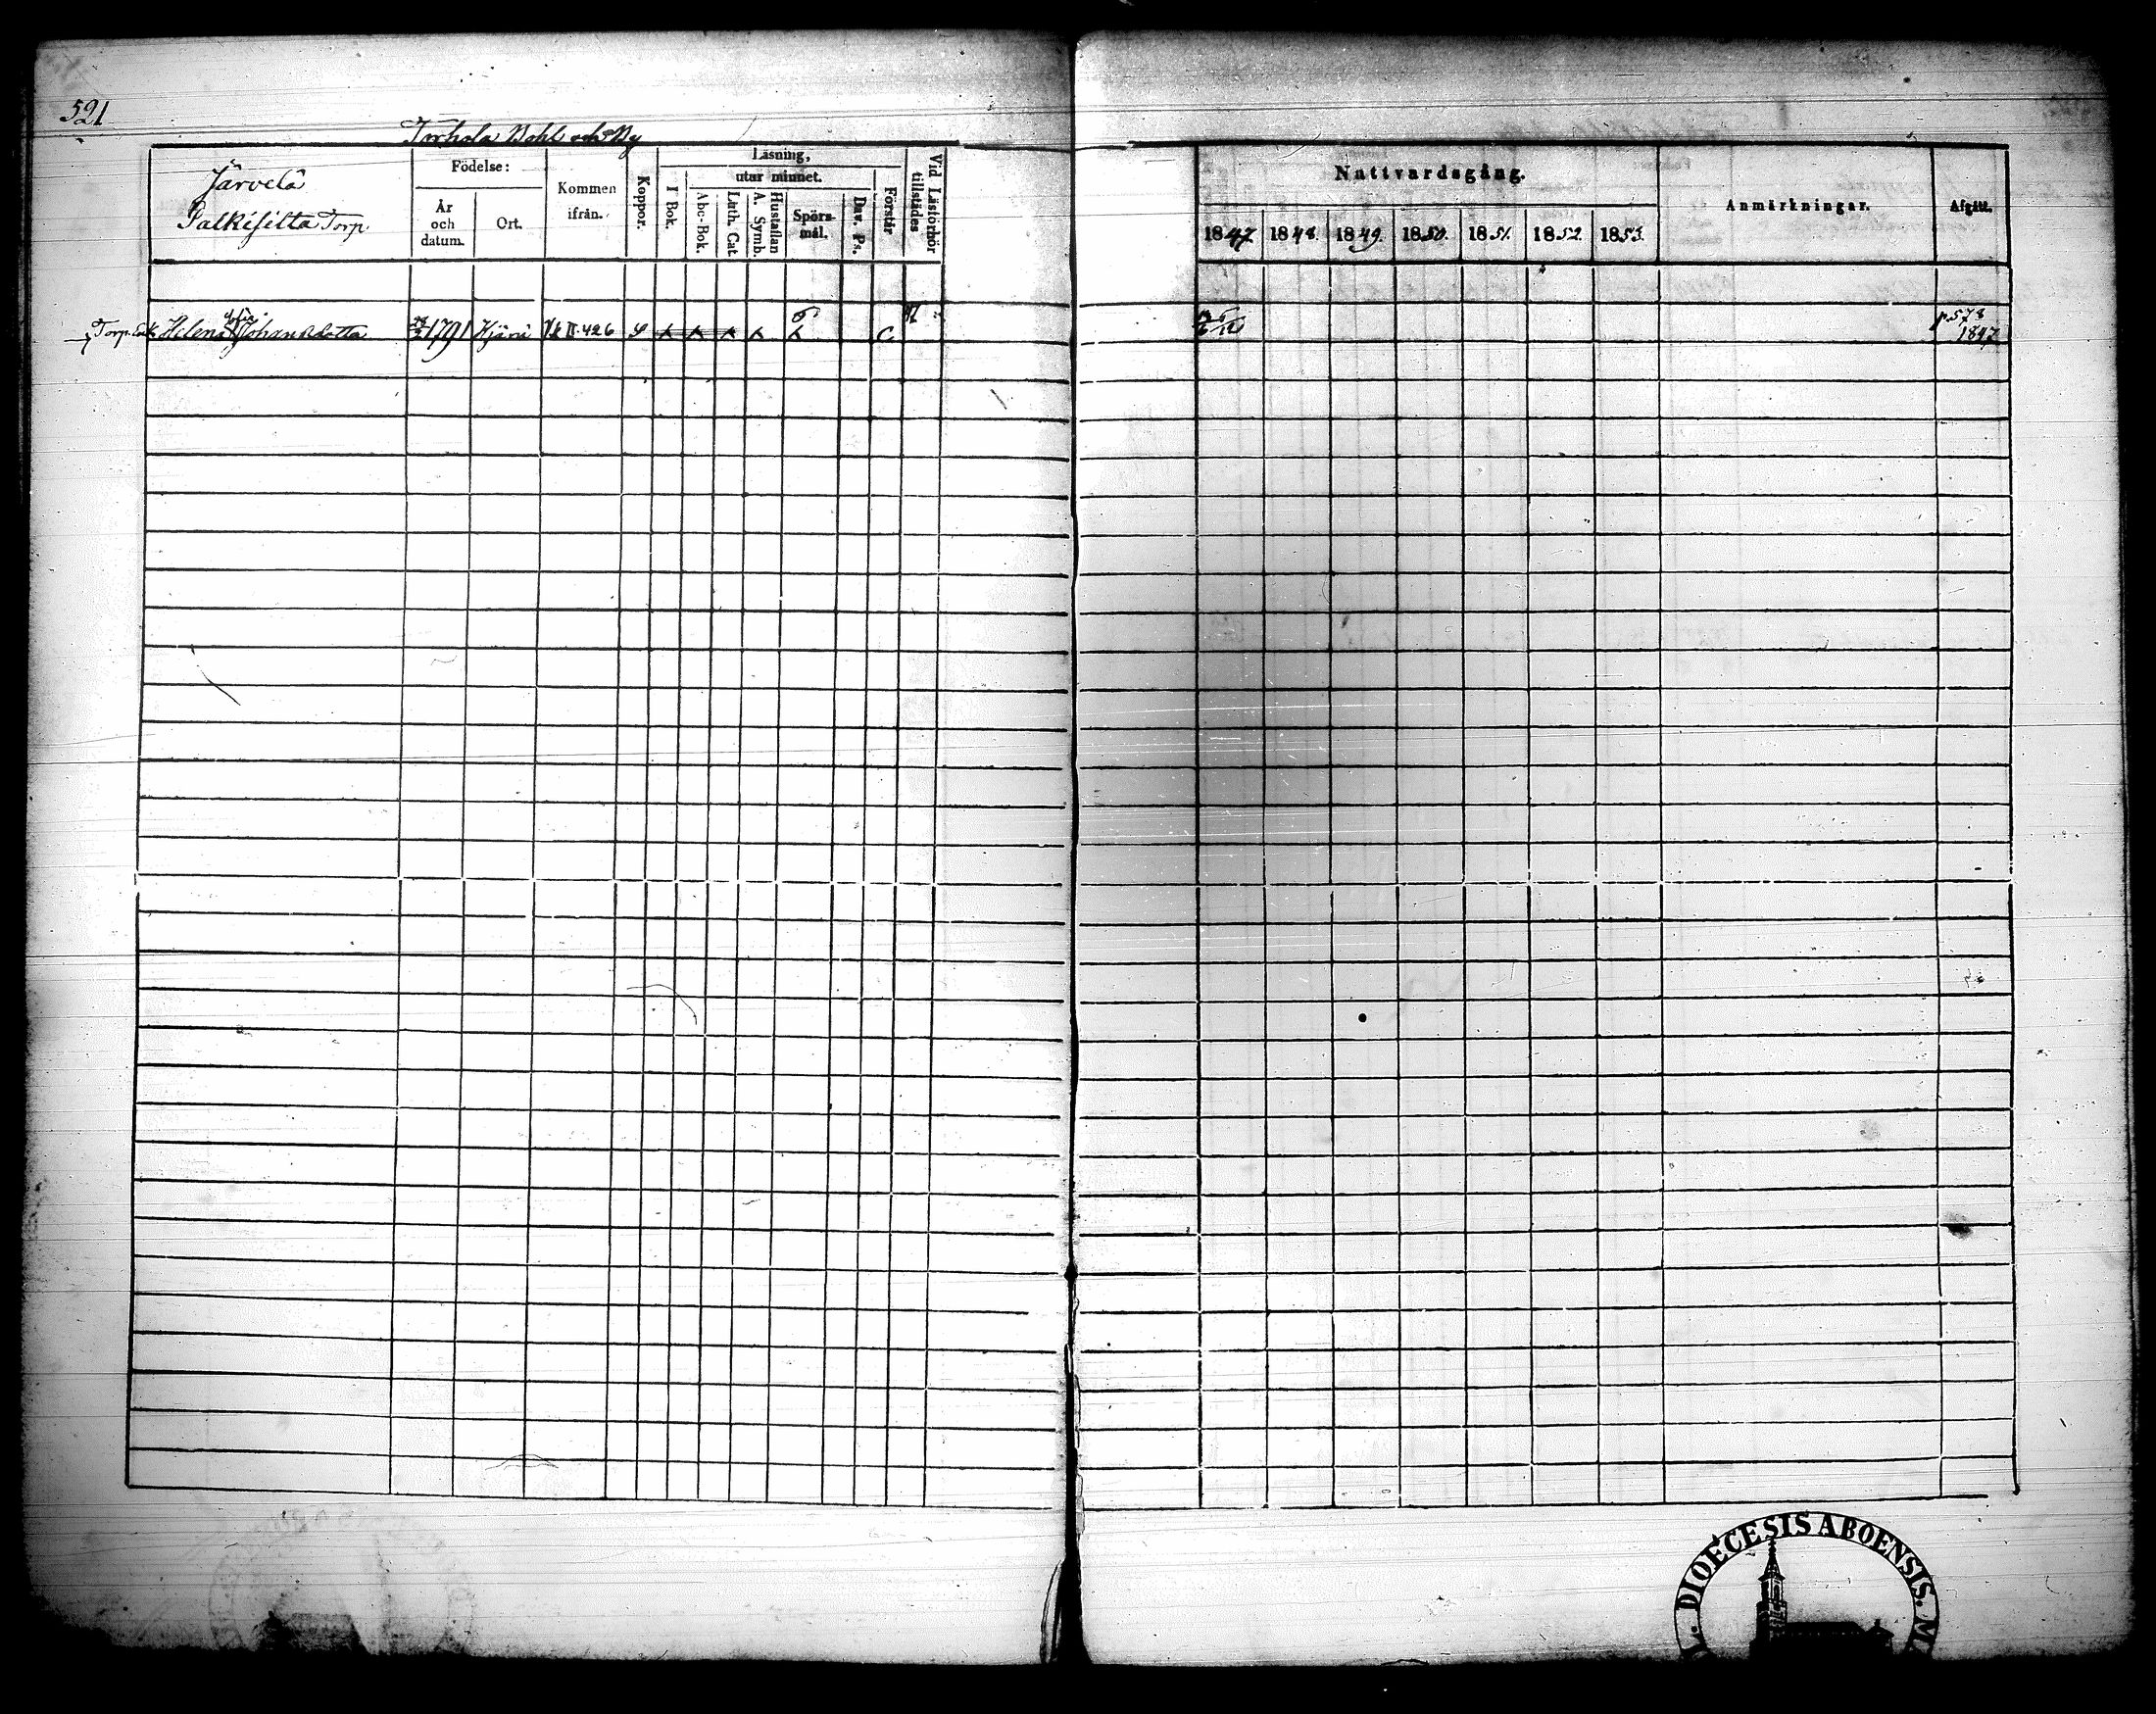 521
Torhola Bohl och By
Järvelä
Palkisilta Torp
Födelse:
År
och
datum.
Ort.
Kommen
ifrån.
Koppor.
Läsning,
utur minnet.
I Bok.
Abc-Bok.
Luth. Cat.
Hustaflan
A. Symb.
Spörs-
mål.
Dav. Ps.
Förstår
Vid Läsförhör
tillstädes
Nattvardsgång.
1847. 1848. 1849. 1850. 1851. 1852. 1853.
Anmärkningar.
Afgått.
Torp. Enk. Helena Johansdotta 1791 Kjärä II. 426 C
p 578
1847
DIOECESIS ABOENSIS.